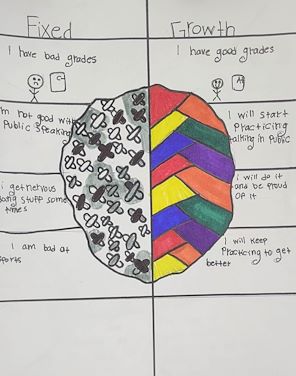 Fixed
Growth
I have bad grades
I have good grades
m not good with
Public Speaking
I will start
Practicing
talking in Public
i get nervous
doing stuff some
times
i will do it
and be proud
OF it
I am bad at
sports
I will keep
Practicing to get
better